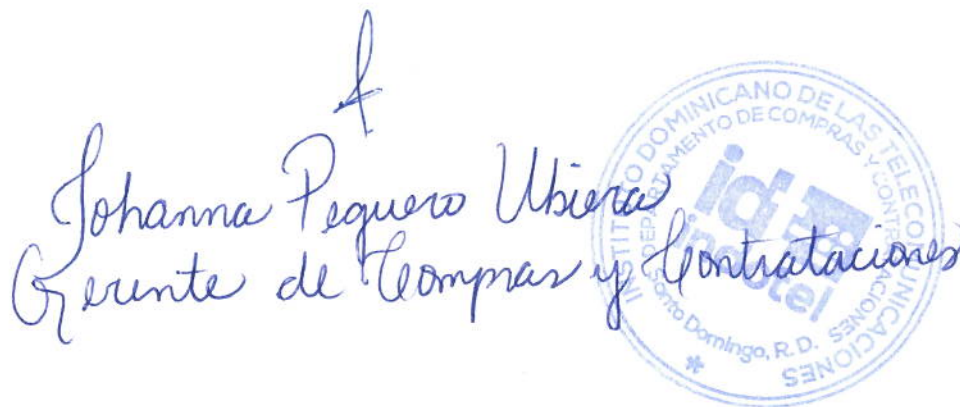 Johanna Peguero Ubiera
Gerente de Compras y Contrataciones
INSTITUTO DOMINICANO DE LAS TELECOMUNICACIONES
DEPARTAMENTO DE COMPRAS Y CONTRATACIONES
indotel
Santo Domingo, R.D.